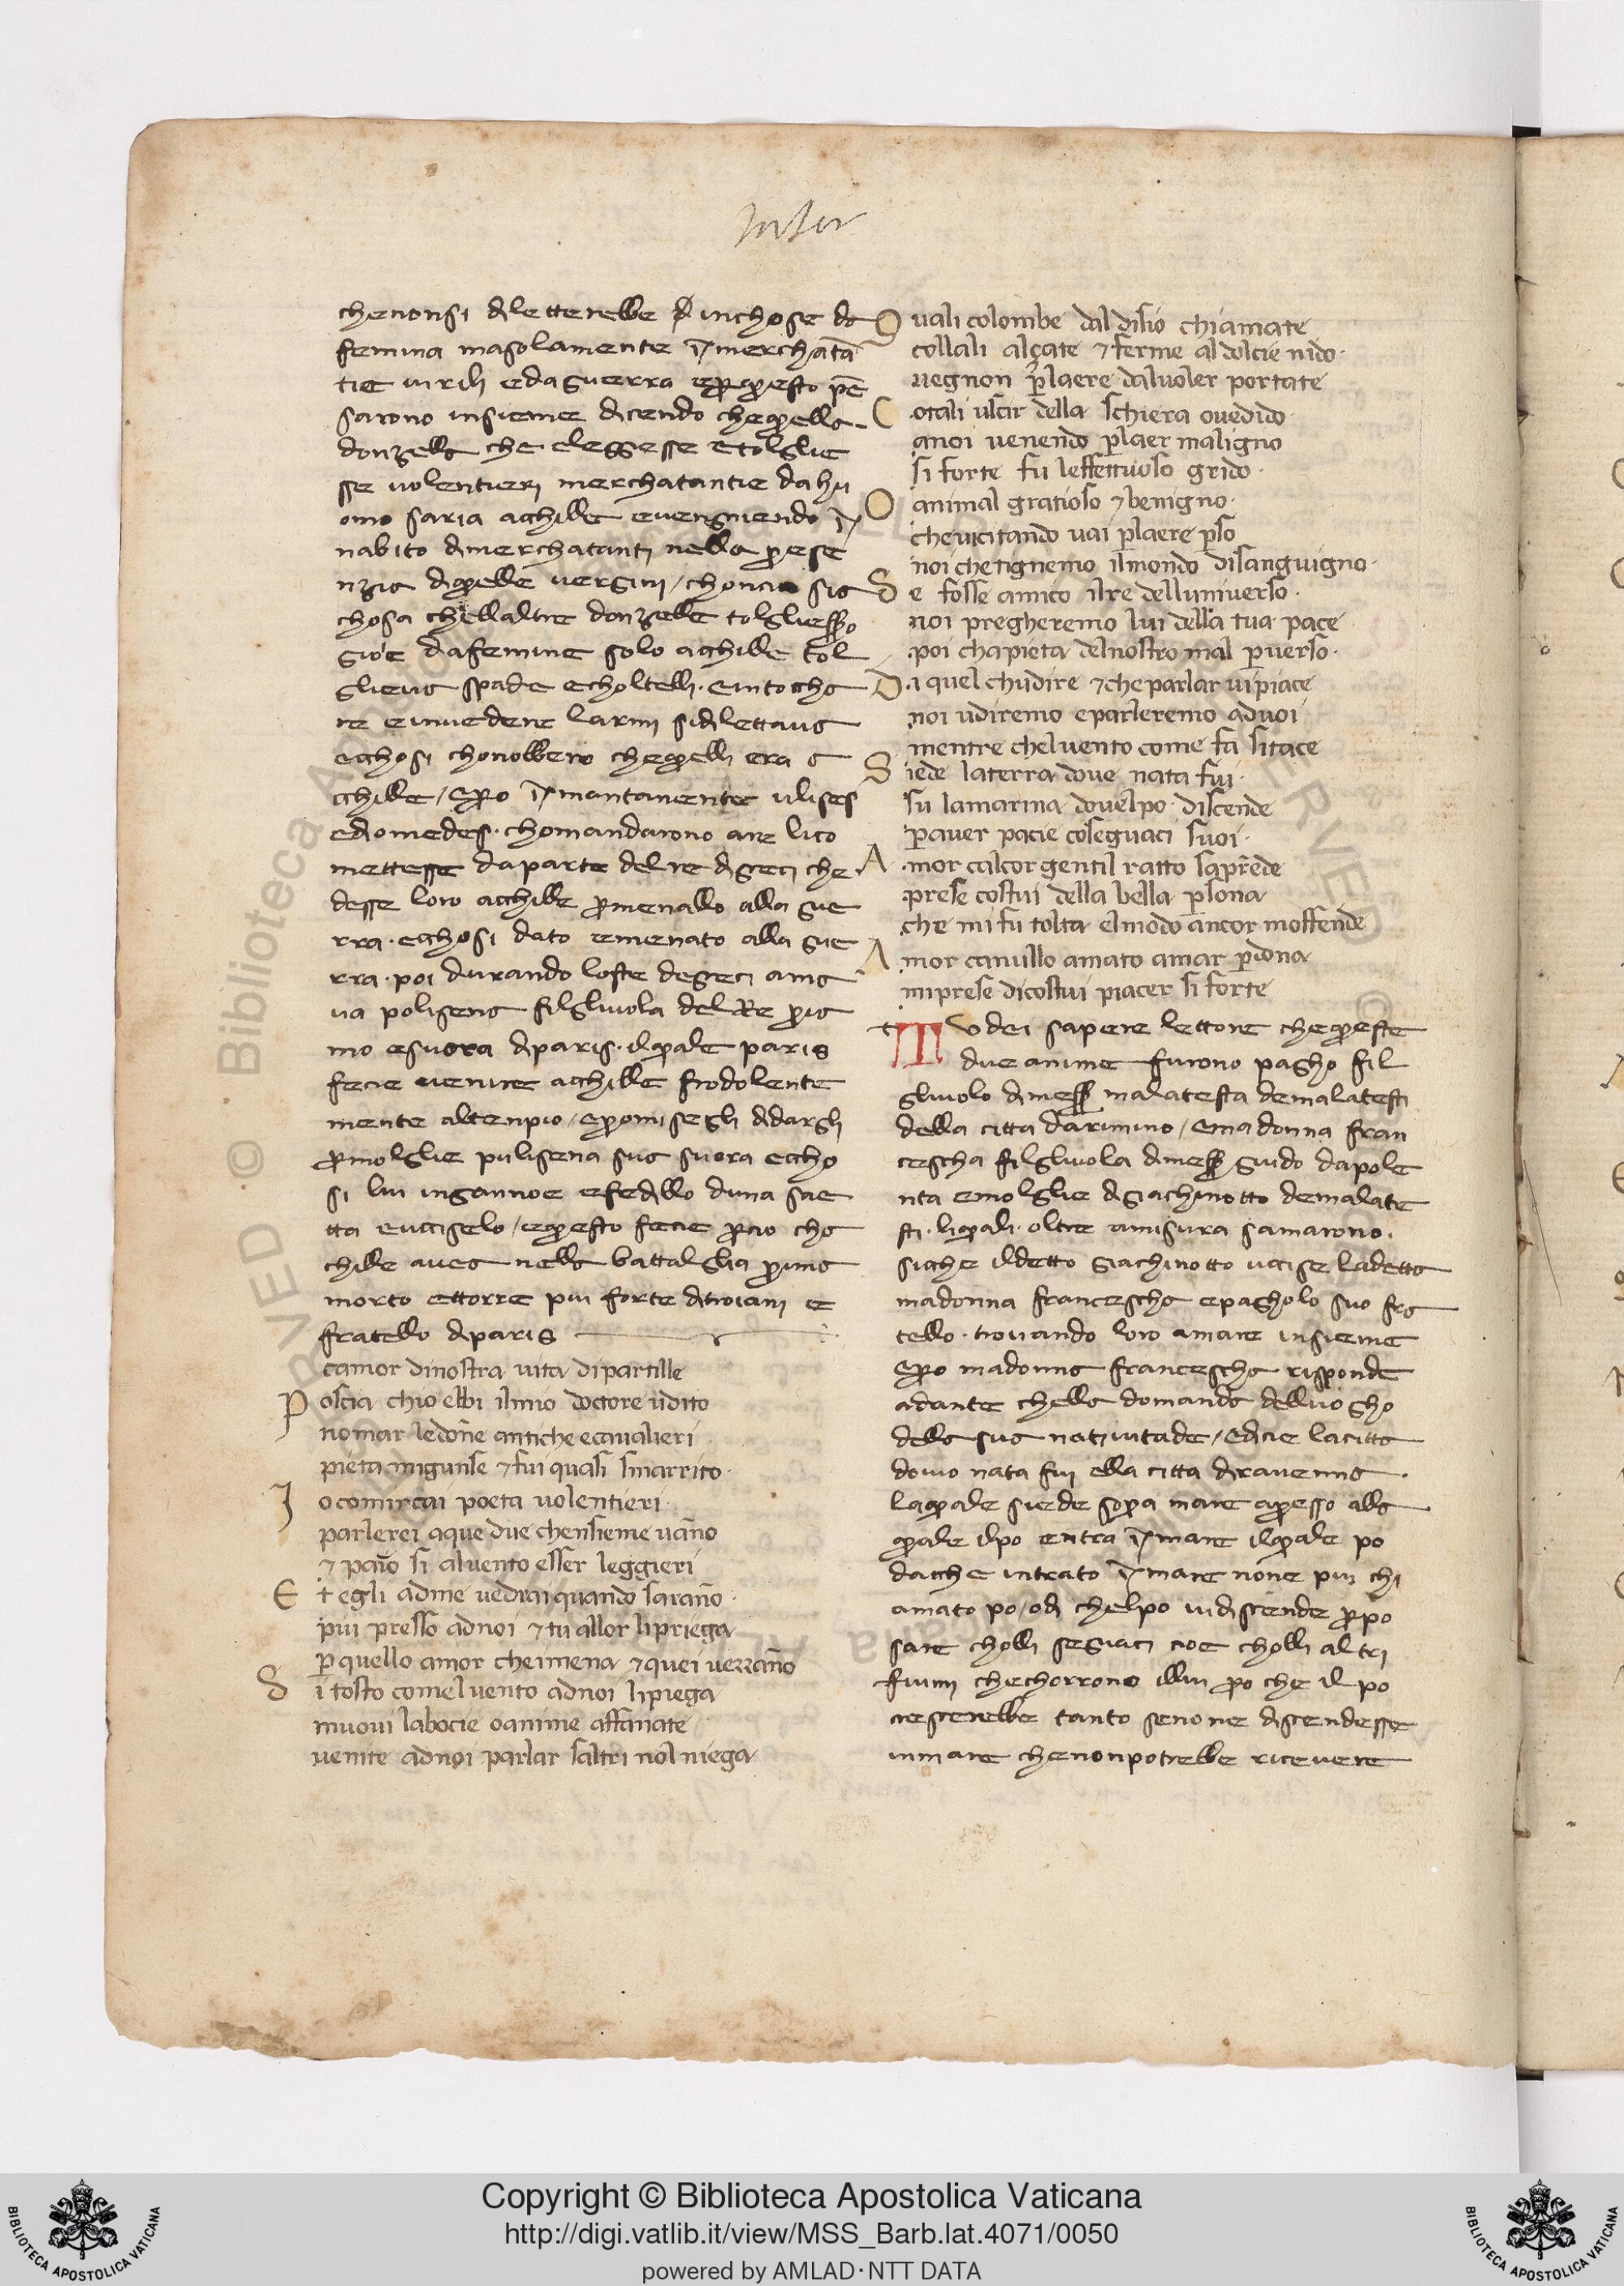 chenonsi diletterebbe d inchose da
femina masolamente i merchata
tie virili edaguerra epquesto pe
sarono insieme dicendo chequella
donzella che elegesse etolglie
sse volentieri merchatantie dahu
omo saria acchille evengniendo i
nabito dimerchatanti nella prese
nzia diquelle vergini / choncio sia
chosa chellaltre donzelle tolgliesso
gioe dafemine solo acchille tol
glieva spade echoltelli · eintocha
re einvedere larmi sidilettava
ecchosi chonobbero chequelli era a
cchille / epero i mantanente ulises
ediomedes · chomandarono are lico
mettesse daparte delre digreci che
desse loro acchille pmenallo alla gue
rra · ecchosi dato emenato alla gue
rra · poi durando loste degreci ama
va polisena filgliuola delRe pria
mo esuora diparis · ilquale paris
fecie venire acchille frodolente
mente altenpio / epromisegli didargli
pmolglie pulisena sua suora eccho
si lui ingannoe efedillo duna sae
tta eucciselo / equesto fecie pcio cha
chille avea nella battalglia prima
morto ettorre piu forte ditroiani e
fratello diparis
camor dinostra vita dipartille
Poscia chio ebbi ilmio doctore udito
nomar ledone antiche ecavalieri
pieta migunse ⁊ fui quasi smarrito ·
Io comincai poeta volentieri
parlerei aque due chensieme vano
⁊ paio si alvento esser leggieri
Et egli adme vedrai quando sarano ·
piu presso adnoi ⁊ tu allor lipriega
p quello amor cheimena ⁊ quei verrano
Si tosto comelvento adnoi lipiega
muovi labocie oanime affanate
venite adnoi parlar saltri nol niega
Quali colombe dal disio chiamate
collali alçate ⁊ ferme aldolcie nido ·
vegnon plaere dalvoler portate
Cotali uscir della schiera ovedido
anoi venendo plaer maligno
si forte fu leffettuoso grido ·
O animal gratioso ⁊ benigno ·
chevicitando vai plaere pso
noi chetignemo ilmondo disanguigno ·
Se fosse amico ilre delluniverso ·
noi pregheremo lui della tua pace
poi chapieta delnostro mal pverso ·
Di quel chudire ⁊ cheparlar vipiace
noi udiremo eparleremo advoi
mentre chelvento come fa sitace
Siede laterra dove nata fui ·
su lamarina dovelpo · discende
paver pacie coseguaci suoi ·
Amor calcor gentil ratto saprede
prese costui della bella psona
che mi fu tolta elmodo ancor moffende
Amor canullo amato amar pdona
mi prese dicostui piacer si forte
Tu dei sapere lettore chequeste
due anime furono pagho fil
gliuolo dimess malatesta demalatesti
della citta darimino / emadonna fran
cescha filgliuola dimess guido dapole
nta emolglie digiachinotto demalate
sti · liquali · oltre amisura samarono ·
sicche ildetto giachinotto uccise ladetta
madonna francescha epagholo suo fra
tello · trovando loro amare insieme
epero madonna francescha risponde
adante chella domanda delluogho
della sua nativitade / edicie lacitta
dovio nata fui ella citta diravenna ·
laquale siede sopra mare apresso alla
quale ilpo entra i mare ilquale po
dacche intrato i mare none piu chi
amato po / odi chelpo vidiscende ppo
sare cholli seguaci cioe cholli altri
fiumi chechorrono illui po che il po
crescerebbe tanto senone discendesse
inmare chenonpotrebbe ricevere
Copyright © Biblioteca Apostolica Vaticana
http://digi.vatlib.it/view/MSS_Barb.lat.4071/0050
powered by AMLAD·NTT DATA